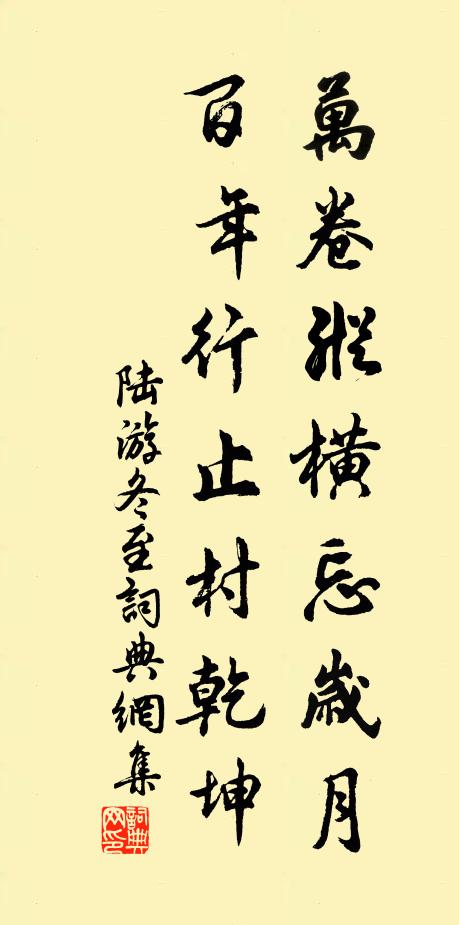 萬卷縱橫忘歲月
百年行止村乾坤
陆游冬至詞典網集
詞典網印